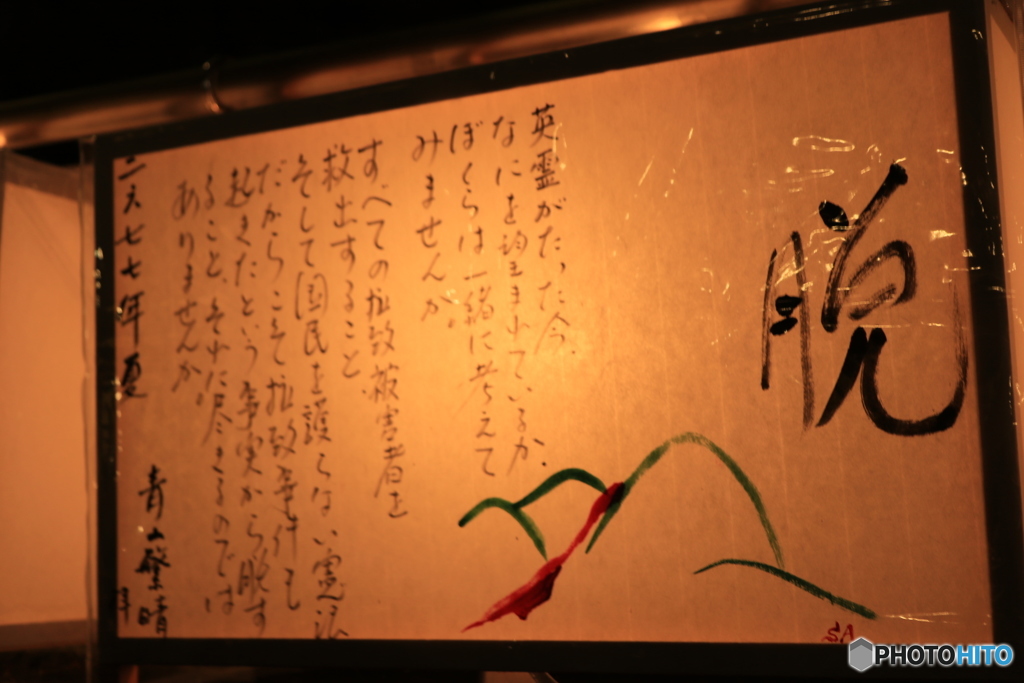 脱
英霊がたった今、
なにを均キまれているか、
ぼくらは一緒に考えて
みませんか
すべての拉致被害者を
救出すること
そして国民を護らない憲法
だからこそ拉致事件も
起きたという事実から脱す
ること、それに尽きるのでは
ありませんか
二六七七年夏
青山繁晴
SA
PHOTOHITO